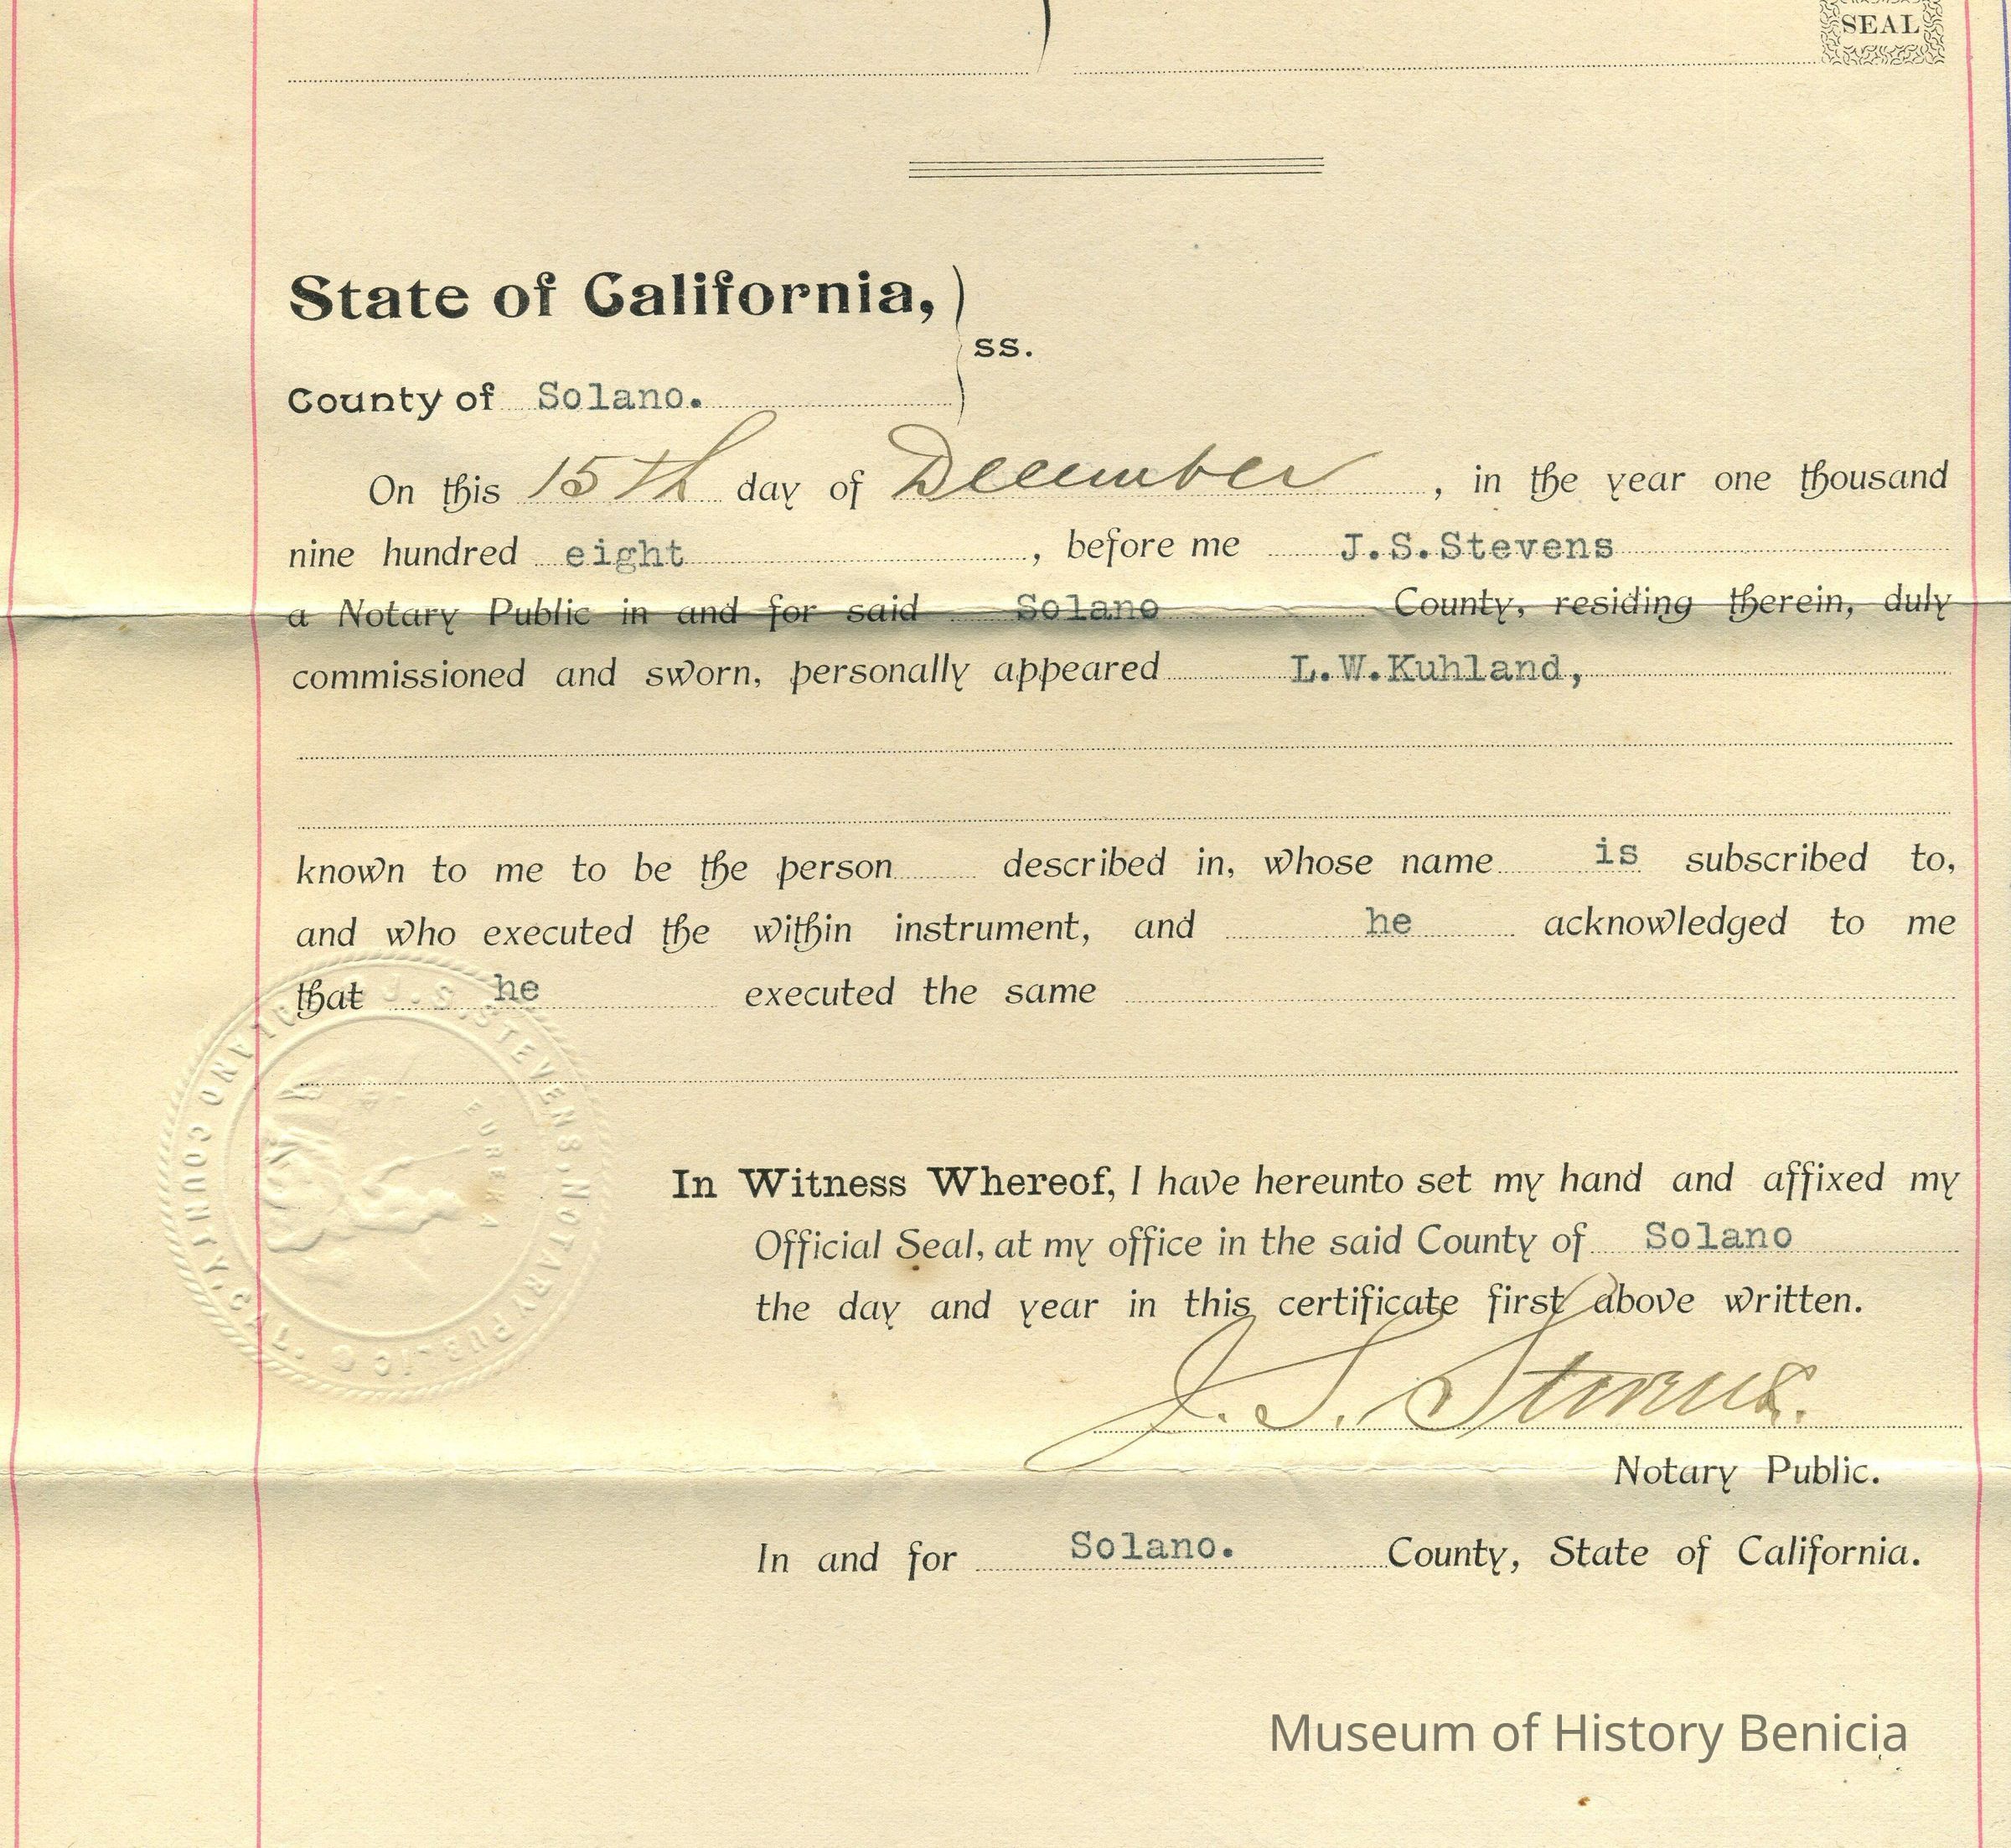 SEAL
State of California,
ss.
County of Solano.
On this 15th day of December, in the year one thousand
nine hundred eight, before me J.S.Stevens
a Notary Public in and for said Solano County, residing therein, duly
commissioned and sworn, personally appeared L.W.Kuhland,
known to me to be the person described in, whose name is subscribed to,
and who executed the within instrument, and he acknowledged to me
that he executed the same
J. S. STEVENS, NOTARY PUBLIC
SOLANO COUNTY, CAL.
EUREKA
In Witness Whereof, I have hereunto set my hand and affixed my
Official Seal, at my office in the said County of Solano
the day and year in this certificate first above written.
J. S. Stevens.
Notary Public.
In and for Solano. County, State of California.
Museum of History Benicia